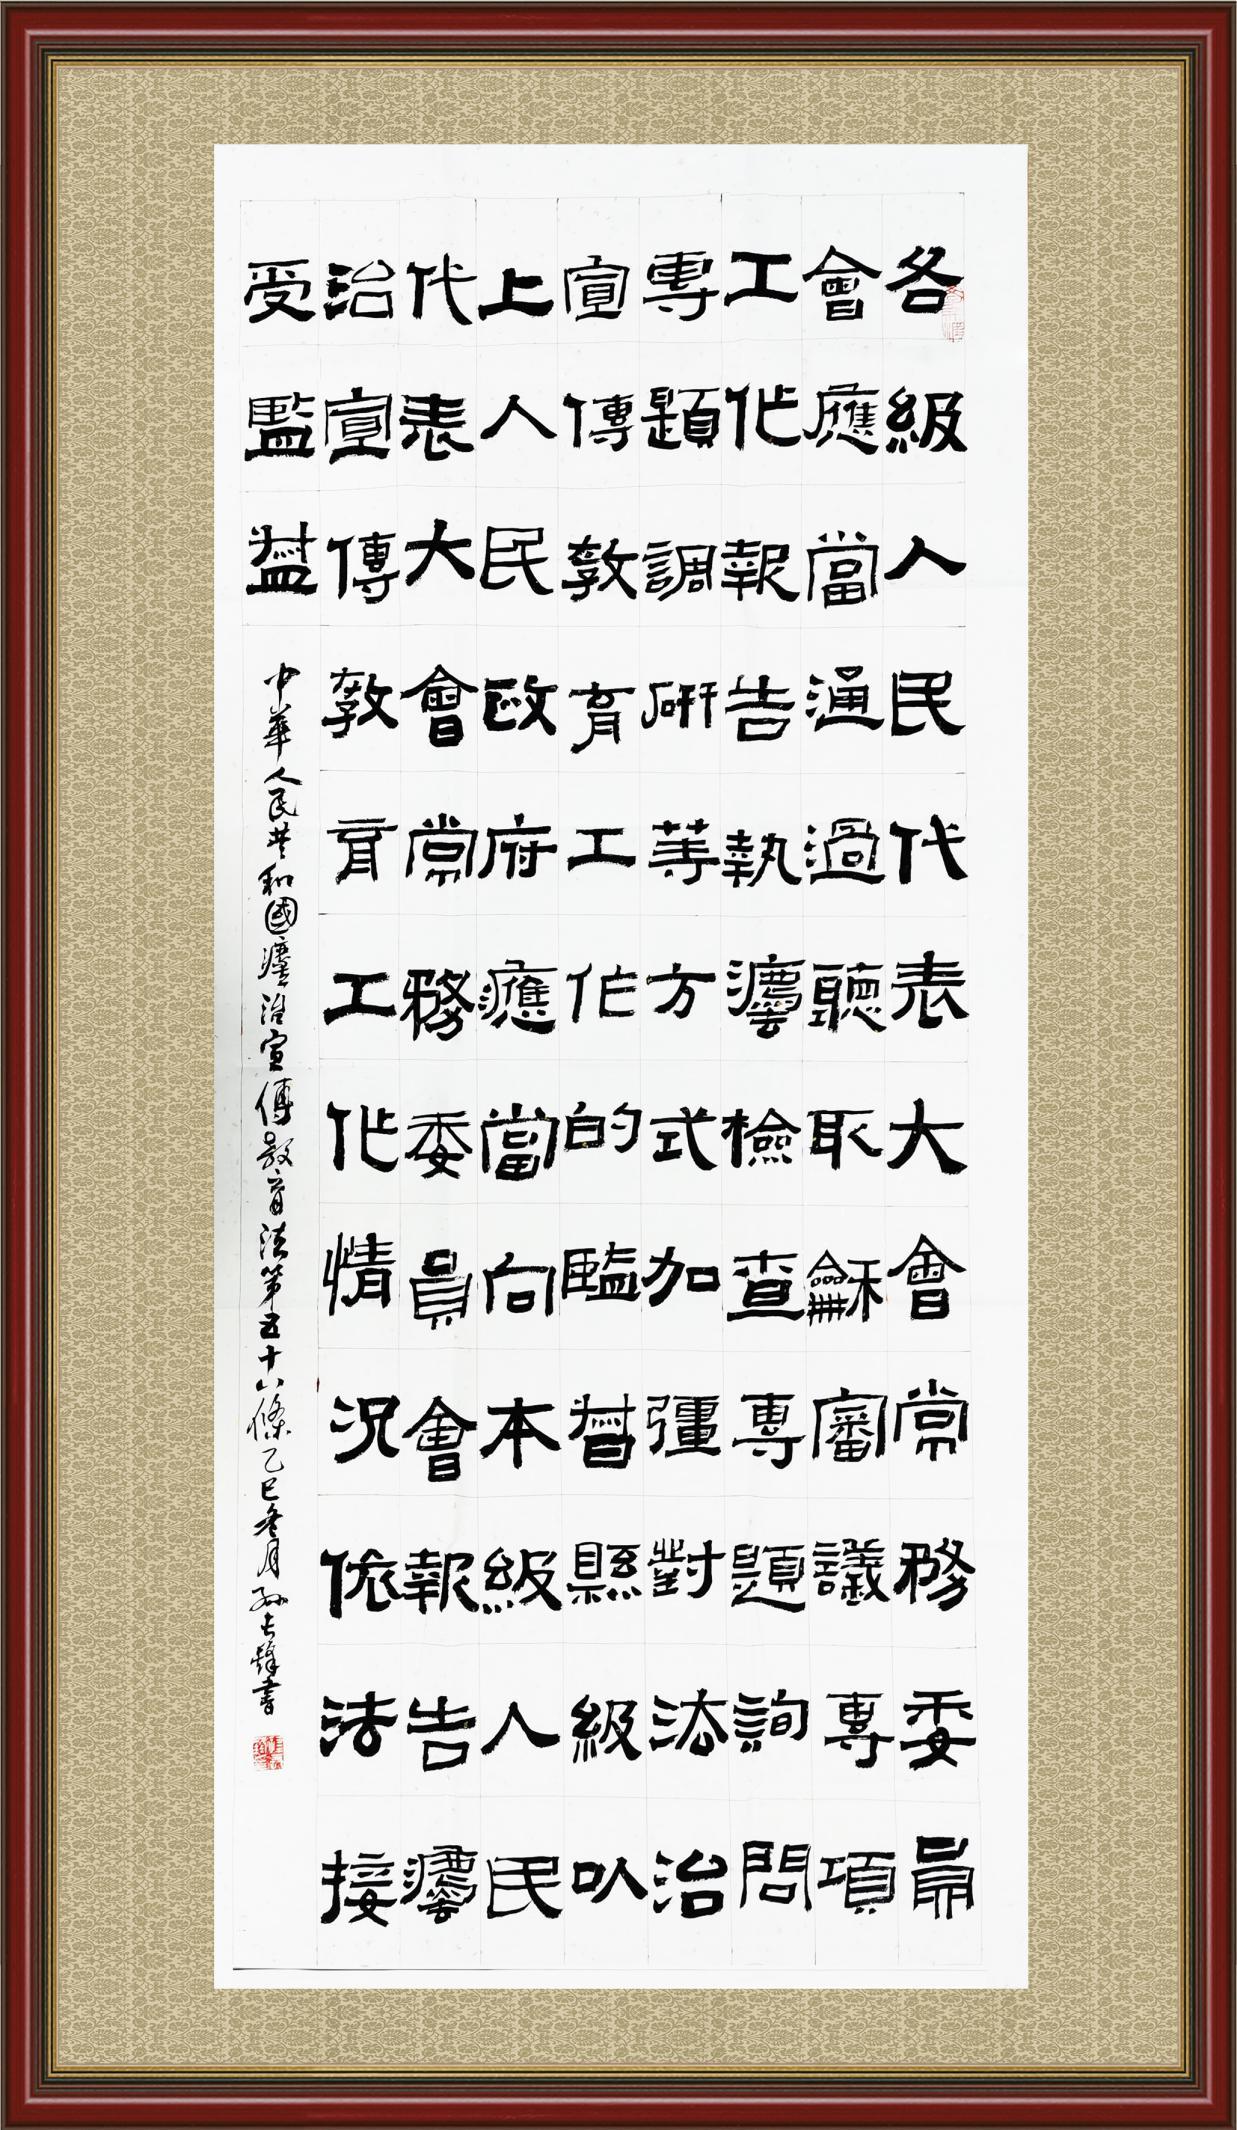 各級人民代表大會常務委員
會應當通過聽取龢審議專項
工作報告執灋檢查專題詢問
專題調研等方式加彊對法治
宣傳教育工作的監督縣級以
上人民政府應當向本級人民
代表大會常務委員會報告灋
治宣傳教育工作情況依法接
受監督
中華人民共和國灋治宣傳教育法第五十八條乙巳冬月孫長鋒書